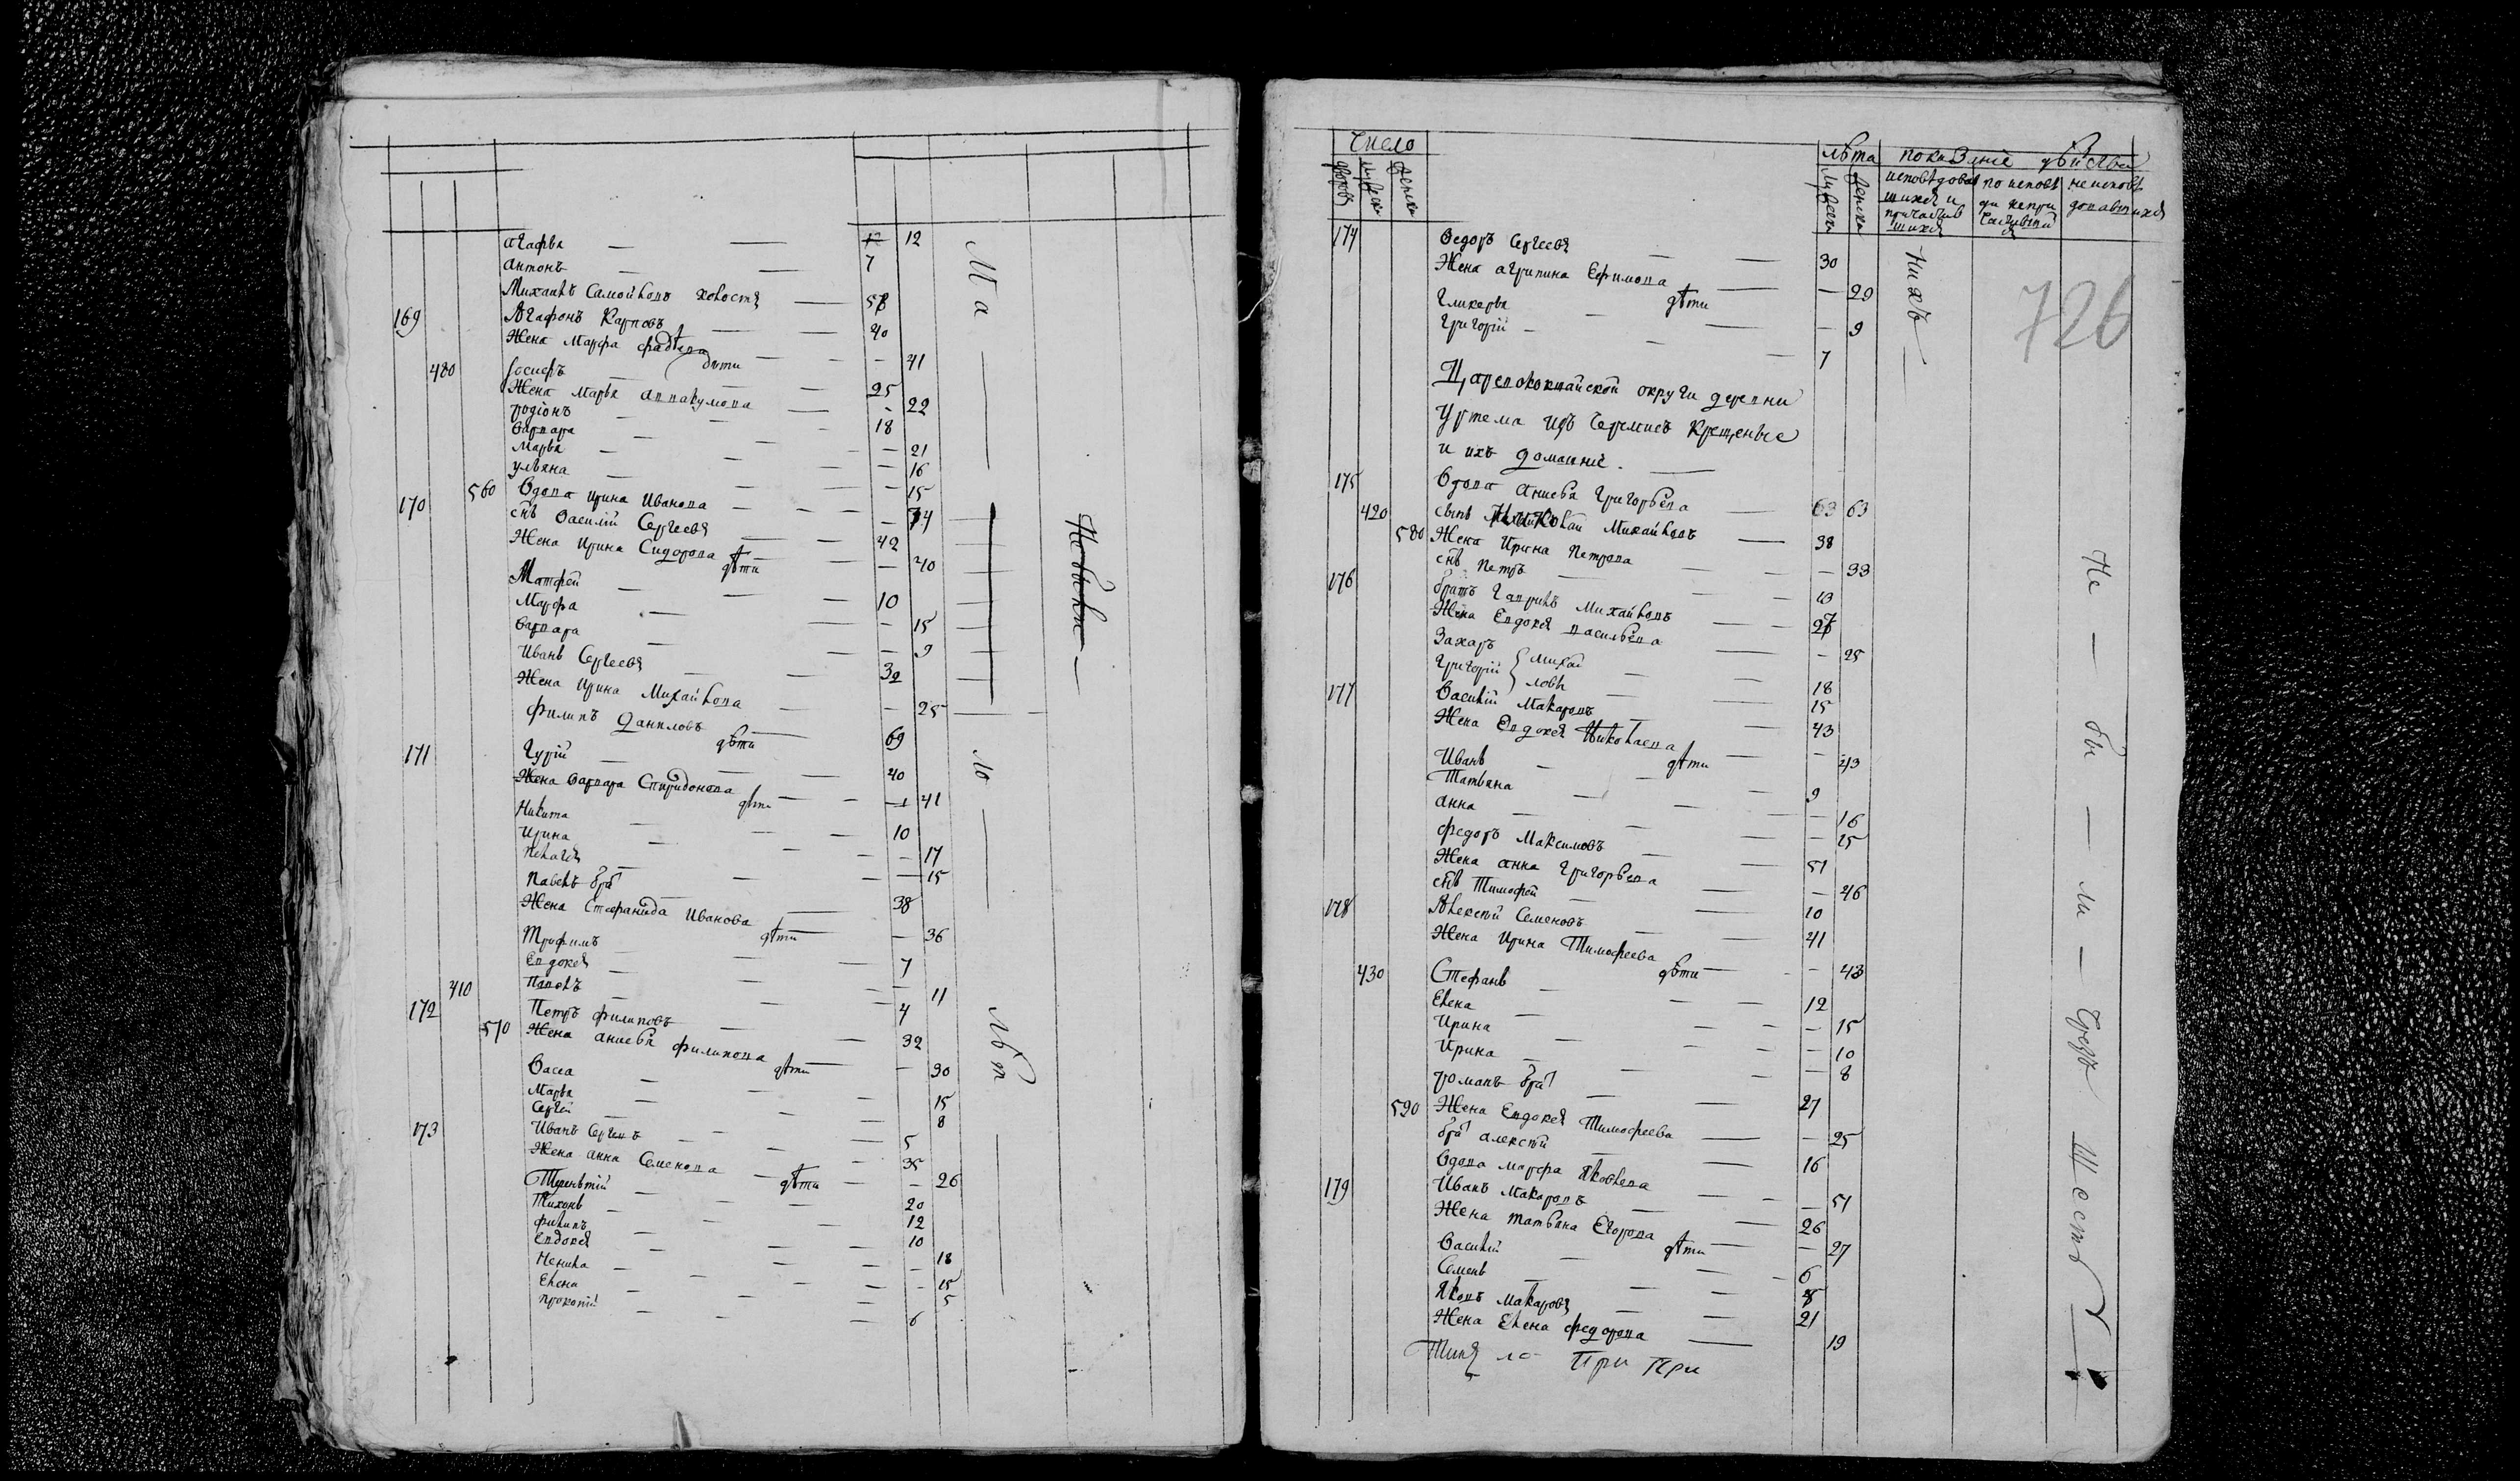 Агафья — — 12 12
Антонъ — — 7
Михаилъ Самойловъ холостъ — 58
169 Агафонъ Карповъ — — 40
Жена Марфа — — 41
дѣти
480 Іосифъ — — 25
Жена Марья Аввакумова — - 22
Родіонъ — — 18
Варвара — — — 21
Марья — — — 16
Ульяна — — — 15
170 560 Вдова Ирина Иванова — — 74
снъ Василій Сергеевъ — — 42
Жена Ирина Сидорова — — 40
дѣти
Матфей — — 10
Марфа — — — 15
Варвара — — — 9
Иванъ Сергеевъ — — 32
Жена Ирина Михайлова — — 25
171 Филипъ Даниловъ — 69
дѣти
Гурій — — 40
Жена Варвара Спиридонова — — 41
дѣти
Никита — — 10
Ирина — — — 17
Пелагея — — — 15
Павелъ бра — — 38
Жена Стефанида Иванова — — 36
дѣти
Трофимъ — — 7
Евдокея — — 11
410 Павелъ — — 4
172 Петръ Филиповъ — — 32
570 Жена Анисья Филипова — — 30
дѣти
Васса — — 15
Марья — — 8
Сергей — — 5
173 Иванъ Сергеевъ — — 35
Жена Анна Семенова — — 26
дѣти
Терентій — — 20
Тихонъ — — 12
Филипъ — — 10
Евдокея — — — 18
Ненила — — — 15
Елена — — — 5
Прокопій — — 6
Ма — ло — лѣт —
Небыли —
Число
дворовъ
мужеска
женска
лѣта
мужеска
женска
показаніе
исповѣдовав
шихся и
причастив
шихся
по исповѣ
ди непри
не исповѣ
довавшихся
174 Ѳедоръ Сергеевъ — — 30
Жена Агрипина Ефимова — — 29
дѣти
Гликерья — — — 9
Григорій — — — 7
нихъ —
726
Царевококшайской округи деревни
Уртема изъ Черемисъ Крещеные
и ихъ домашніе. —
175 Вдова Анисья Григорьева — 63 63
420 сынъ Николай Михайловъ — 38
580 Жена Ирина Петрова — — 33
снъ Петръ — — 10
176 братъ Гаврилъ Михайловъ — — 27
Жена Евдокея Васильева — — 25
Захаръ — — 18
Григорій — — 15
Михай
ловы
177 Василій Макаровъ — — 43
Жена Евдокея Николаева — — 43
дѣти
Иванъ — — 9
Татьяна — — — 16
Анна — — — 15
Федоръ Максимовъ — — 51
Жена Анна Григорьева — — 46
снъ Тимофей — — 10
178 Алексѣй Семеновъ — — 41
Жена Ирина Тимофеева — — 43
дѣти
430 Стефанъ — — 12
Елена — — — 15
Ирина — — — 10
Ирина — — — 8
Романъ бра — — 27
590 Жена Евдокея Тимофеева — — 25
бра Алексѣй — — 16
Вдова Марфа Яковлева — — 51
179 Иванъ Макаровъ — — 26
Жена Татьяна Егорова — — 27
дѣти
Василій — — 6
Семенъ — — 8
Яковъ Макаровъ — — 21
Жена Елена Федорова — 19
При При
Не — бы — ли —